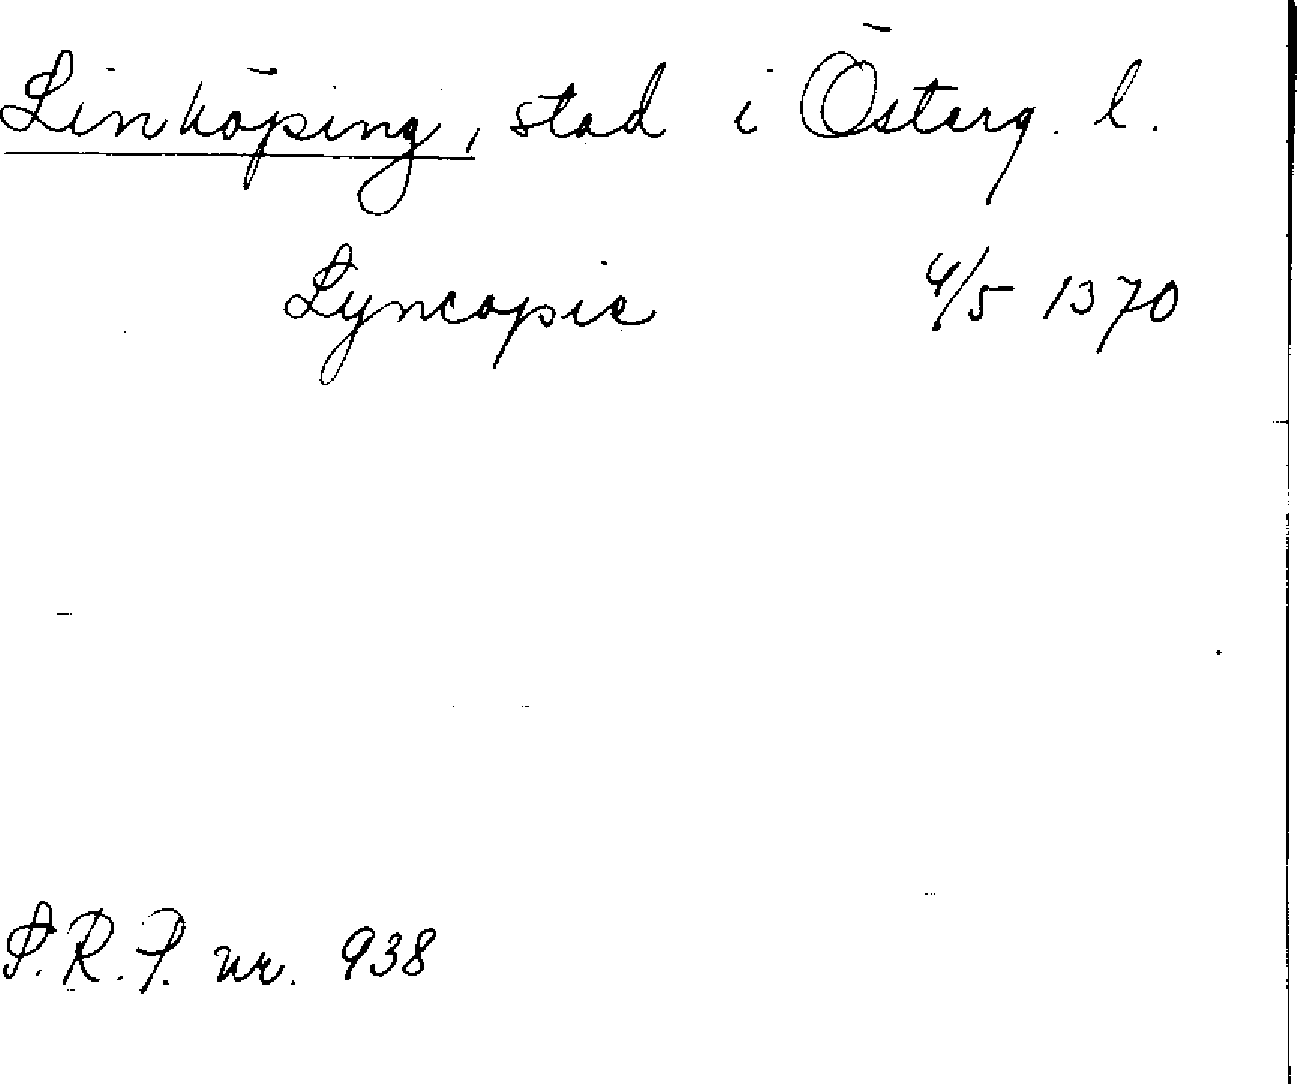 Linköping, stad i Österg. l.
Lyncopie 4/5 1370
S.R.P. nr. 938